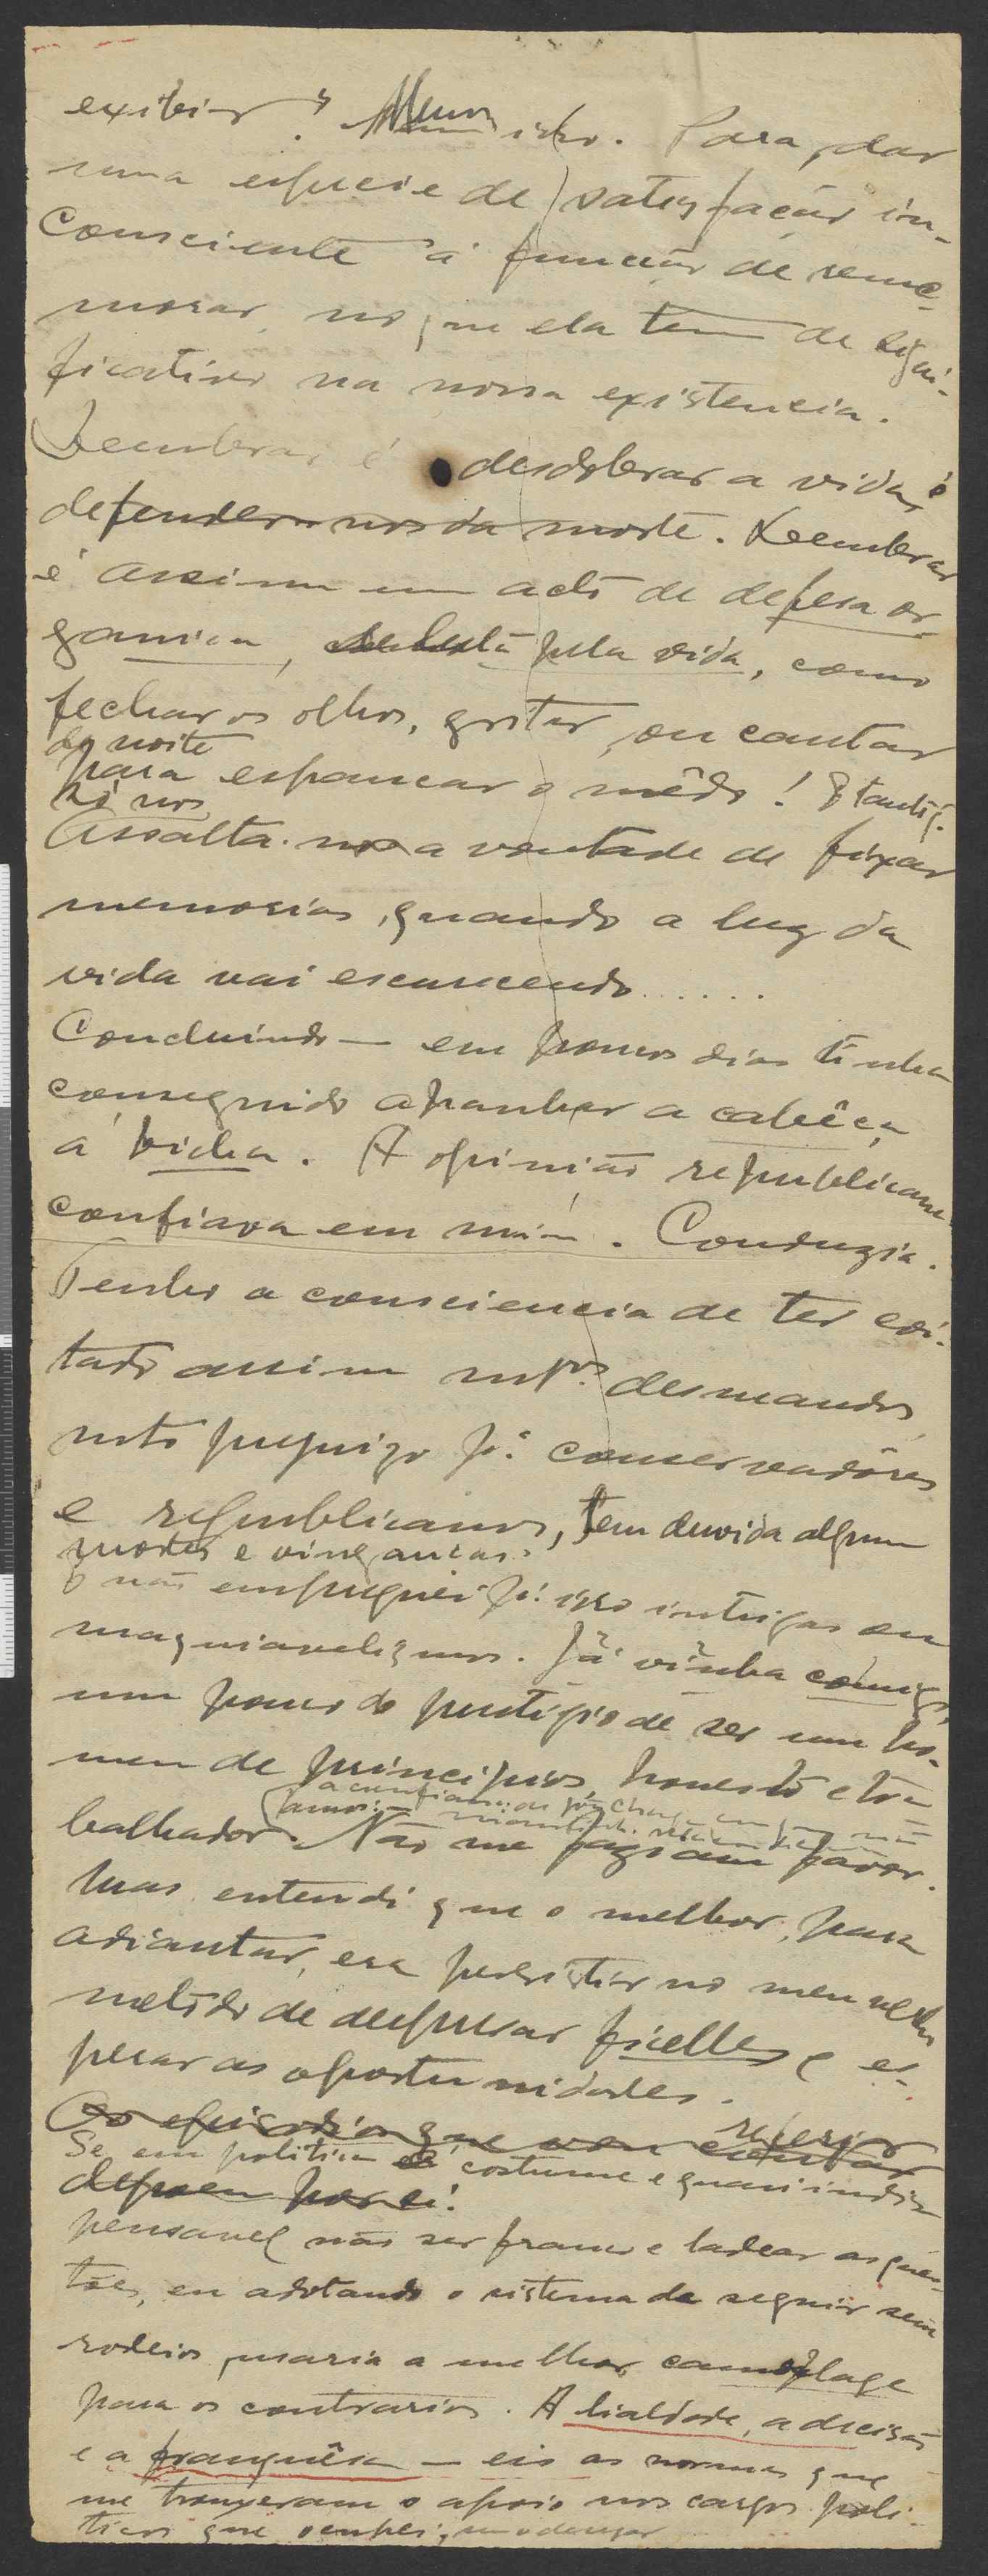 exibir? Menos isso. Para dar
uma especie de satisfação in-
consciente á função de reme-
morar, no que ela tem de signi-
ficativo na nossa existencia.
Lembrar é desdobrar a vida, é
defender-nos da morte. Lembrar
é assim um acto de defesa or-
ganica, de luta pela vida, como
fechar os olhos, gritar, ou cantar
de noite
para espancar o mêdo! E tanto q.
só nos
assalta a vontade de fixar
memorias, quando a luz da
vida vai escurecendo......
Concluindo — em poucos dias tinha
conseguido apanhar a cabêça
á bicha. A opinião republicana
confiava em mim. Conduzia.
Tenho a consciencia de ter evi-
tado assim mtos. desmandos,
mto prejuizo pª. conservadôres
e republicanos, sem duvida algumas
mortes e vinganças.
E não empreguei pª. isso intrigas ou
maquiavelismos. Já vinha comigo
um pouco do prestigio de ser um ho-
mem de principios, honesto e tra-
balhador. Não me faziam favor.
Mas entendi que o melhor, para
adiantar, era persistir no meu velho
metodo de desprezar ficelles e es-
perar as oportunidades.
Os episodios que vou contar
referir
Se em politica é costume e quasi indis-
depoem por si.
pensavel não ser franco e ladear as ques-
tões, eu adotando o sistema de seguir sem
rodeios, usaria a melhor camoflage
para os contrarios. A lialdade, a decisão
e a franquêsa — eis as normas que
me trouxeram o apoio nos cargos poli-
ticos que ocupei,